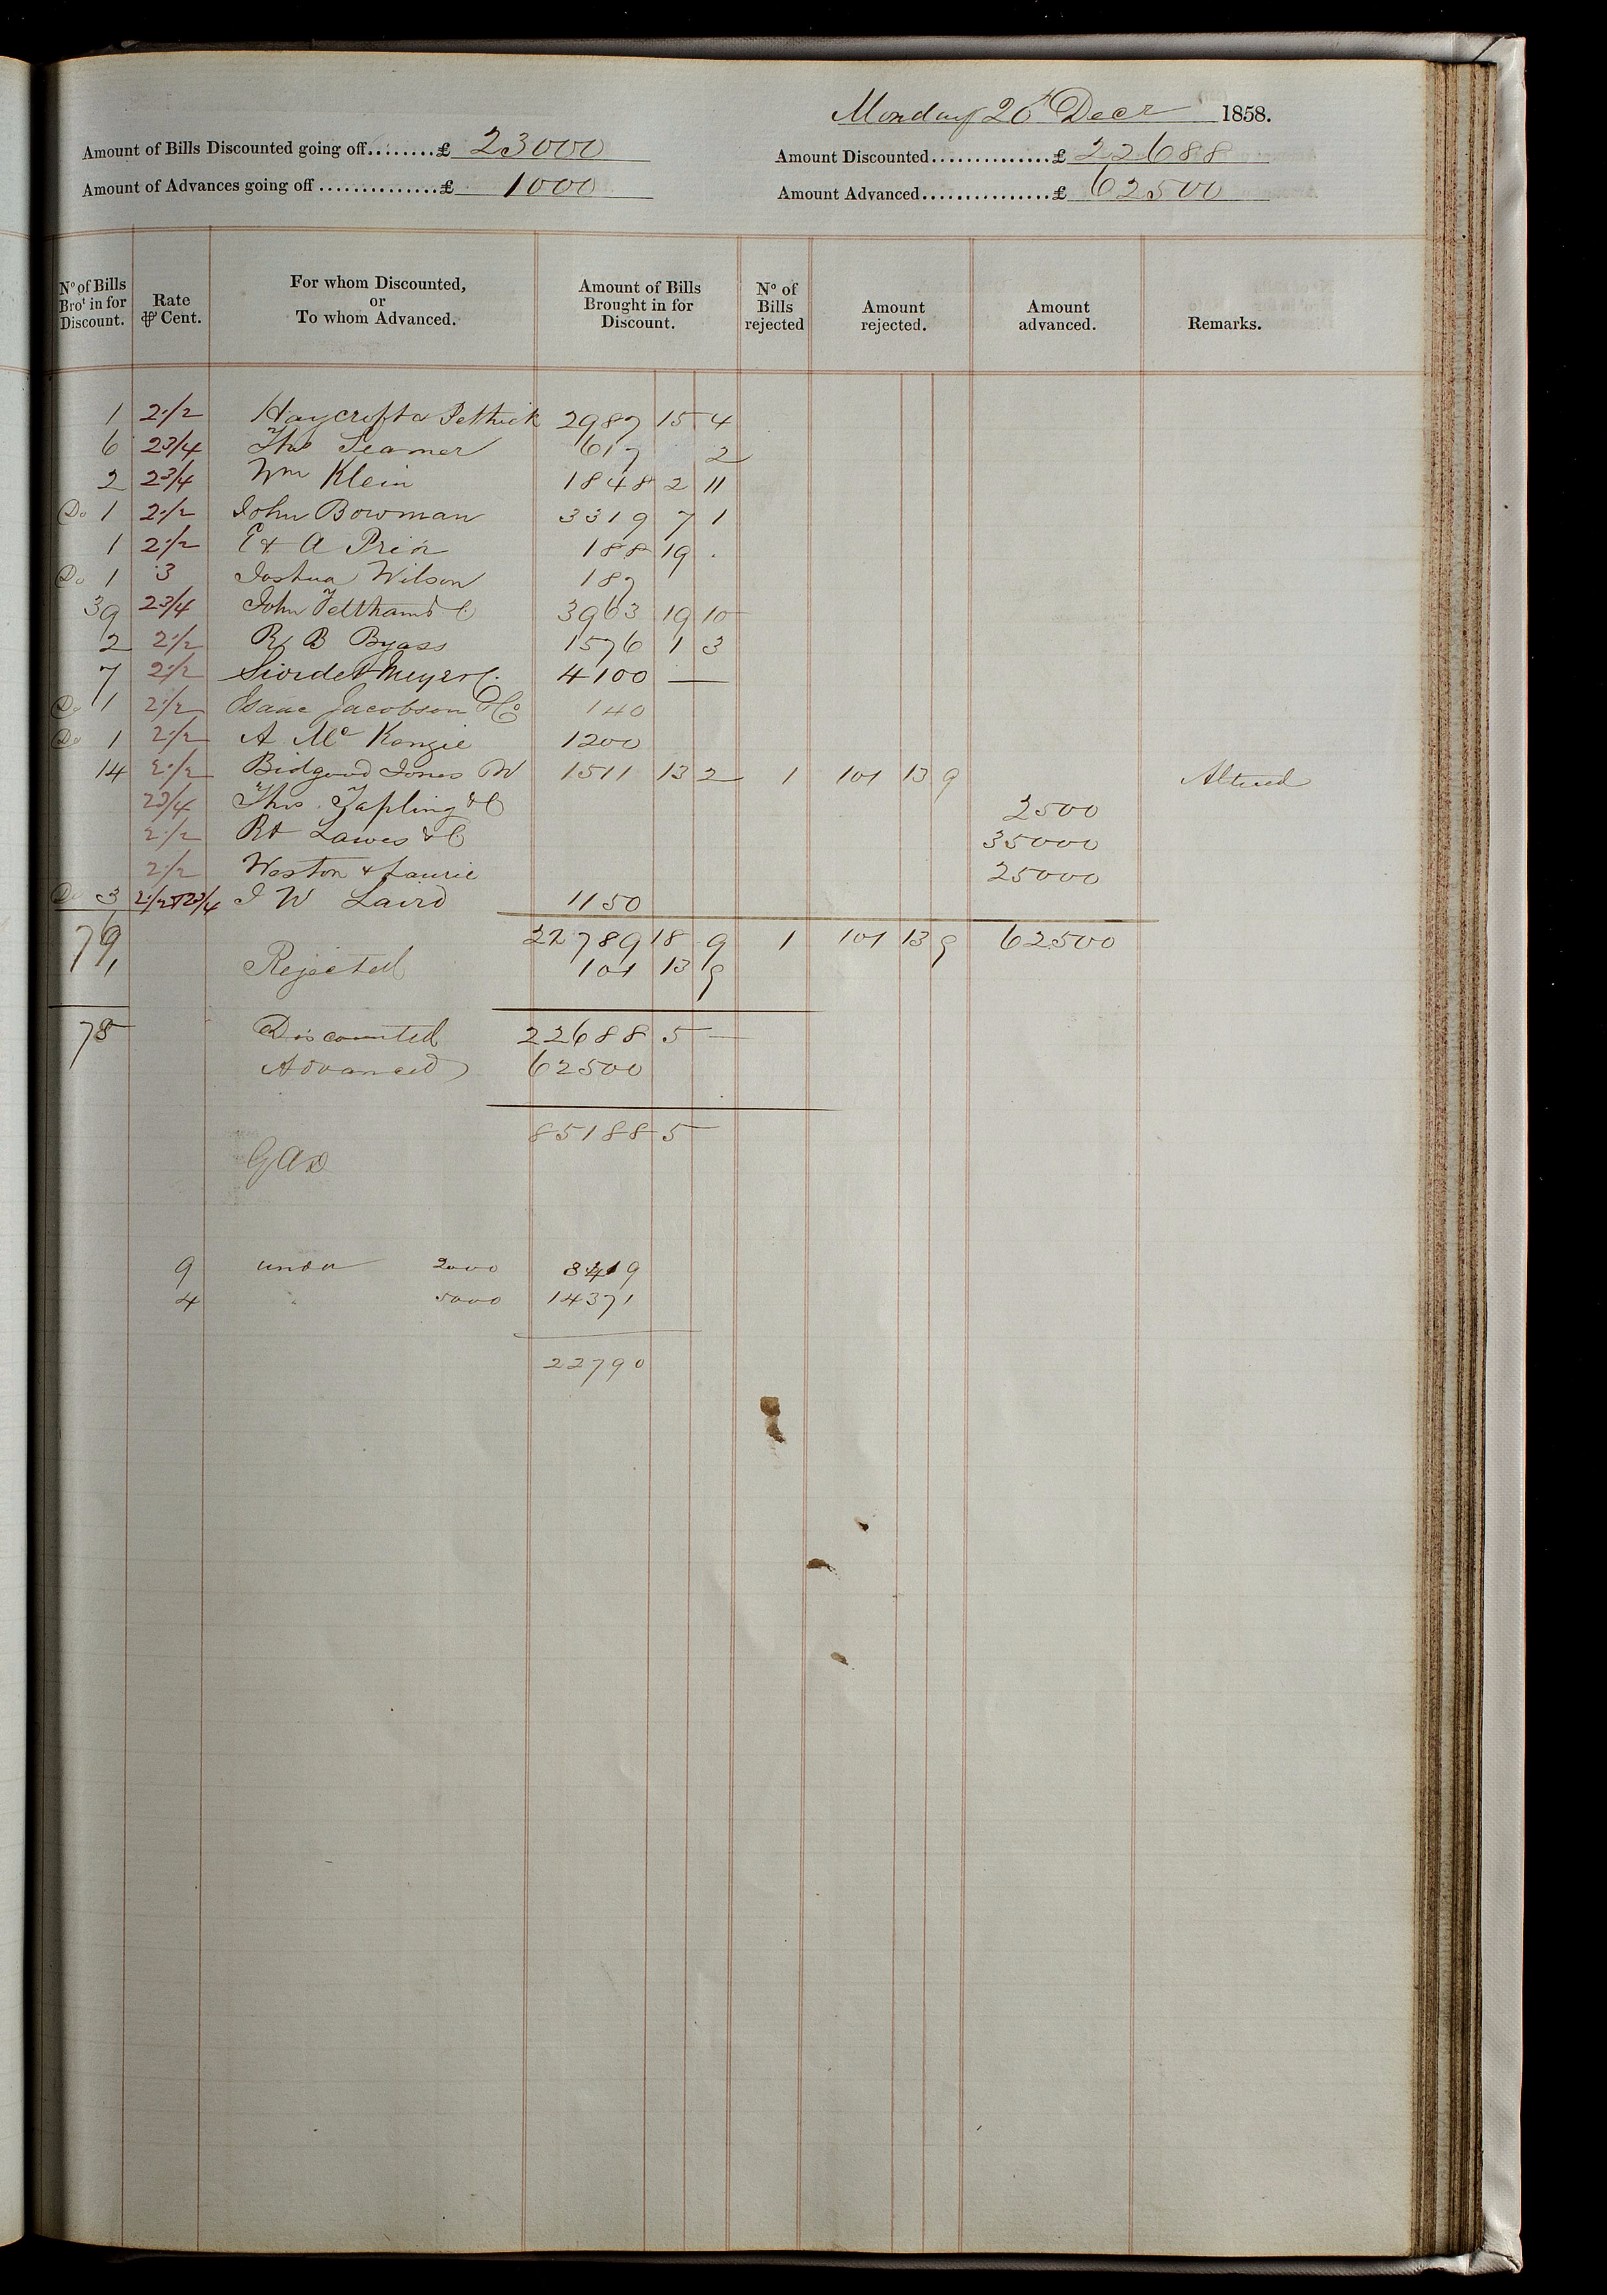 Monday 20th Decr 1858.
Amount of Bills Discounted going off........£ 23000
Amount Discounted...............£ 22688
Amount of Advances going off...............£ 1000
Amount Advanced................£ 62500
No of Bills Brot in for Discount. Rate ⅌ Cent. For whom Discounted, or To whom Advanced. Amount of Bills Brought in for Discount. No of Bills rejected Amount rejected. Amount advanced. Remarks.
1 2 1/2 Haycroft & Pethick 2987 15 4
6 2 3/4 Thos Seamer 617 2
2 2 3/4 Wm Klein 1848 2 11
Do 1 2 1/2 John Bowman 3319 7 1
1 2 1/2 E & A Prior 188 19 .
Do 1 3 Joshua Wilson 187
39 2 3/4 John Feltham & C 3963 19 10
2 2 1/2 R B Byass 1576 1 3
7 2 1/2 Siordet Meyer C. 4100 —
Do 1 2 1/2 Isaac Jacobson & Co 140
Do 1 2 1/2 A Mc Kenzie 1200
14 2 1/2 Bidgood Jones W 1511 13 2 1 101 13 9 Altered
2 3/4 Thos Tapling & C 2500
2 1/2 Rt Lawes & C 35000
2 1/2 Weston & Laurie 25000
Do 3 2 1/2 & 2 3/4 J W Laird 1150
79 22789 18 9 1 101 13 9 62500
1 Rejected 101 13 9
78 Discounted 22688 5 —
Advanced 62500
85188 5 —
9 under 2000 8419
4 5000 14371
22790